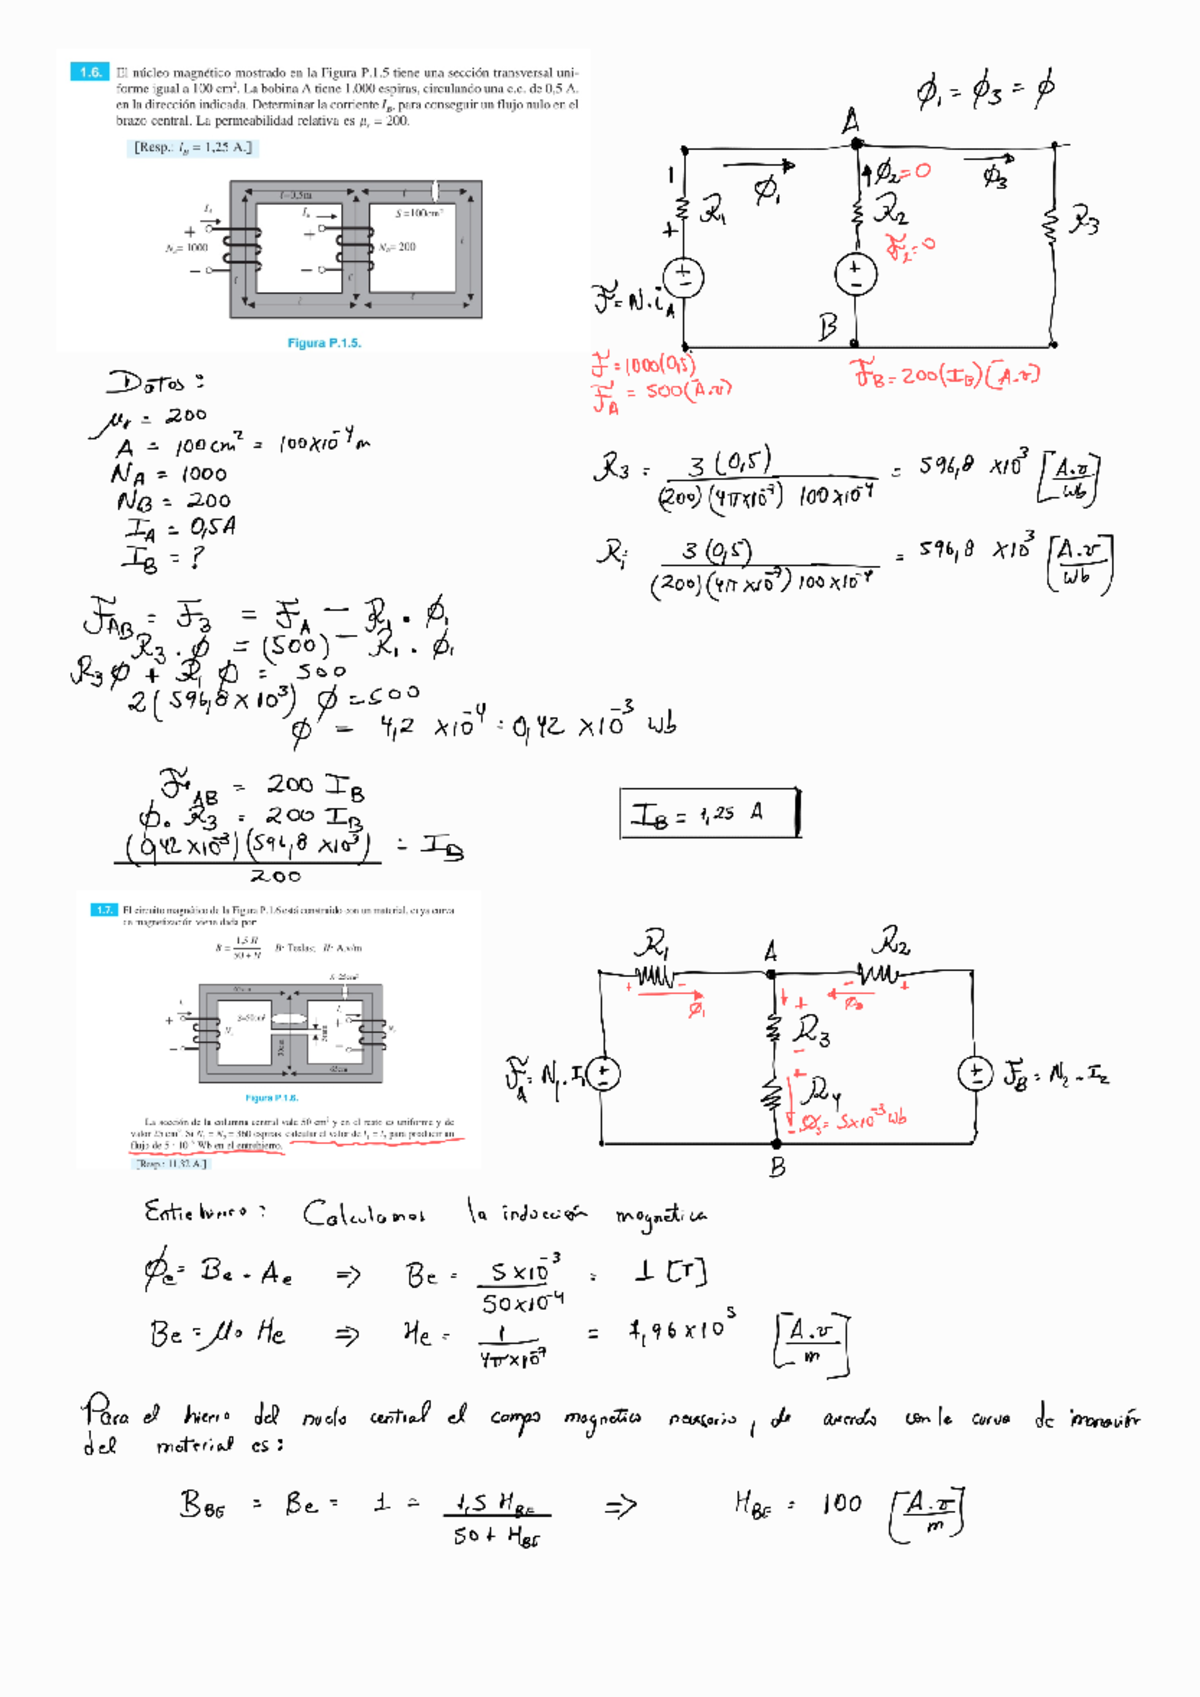 1.6. El núcleo magnético mostrado en la Figura P.1.5 tiene una sección transversal uni-
forme igual a 100 cm². La bobina A tiene 1.000 espiras, circulando una c.c. de 0,5 A.
en la dirección indicada. Determinar la corriente I_B, para conseguir un flujo nulo en el
brazo central. La permeabilidad relativa es μ_r = 200.
[Resp.: I_B = 1,25 A.]
l=0,5m
S=100cm²
N_A= 1000
N_B= 200
Figura P.1.5.
φ₁ = φ₃ = φ
A
φ₁
φ₂=0
φ₃
R₁
R₂
R₃
F₂=0
F = N.i_A
B
F = 1000(0,5)
F_A = 500(A.v)
F_B = 200(I_B)(A.v)
Datos:
μr = 200
A = 100cm² = 100x10⁻⁴m
N_A = 1000
N_B = 200
I_A = 0,5A
I_B = ?
R₃ = 3(0,5) / (200)(4πx10⁻⁷) 100x10⁻⁴ = 596,8 x10³ [A.v/wb]
R₁ 3(0,5) / (200)(4πx10⁻⁷) 100x10⁻⁴ = 596,8 x10³ [A.v/wb]
F_AB = F₃ = F_A - R₁ . φ₁
R₃ . φ = (500) - R₁ . φ₁
R₃φ + R₁ φ = 500
2(596,8x10³) φ = 500
φ = 4,2 x10⁻⁴ = 0,42 x10⁻³ wb
F_AB = 200 I_B
φ. R₃ = 200 I_B
(0,42x10⁻³)(596,8 x10³) / 200 = I_B
I_B = 1,25 A
1.7. El circuito magnético de la Figura P.1.6 está construido con un material, cuya curva
de magnetización viene dada por:
B = 1,5 H / 50 + H B: Teslas; H: A.v/m
Figura P.1.6.
La sección de la columna central vale 50 cm² y en el resto es uniforme y de
valor 25 cm². Si N₁ = N₂ = 360 espiras, calcular el valor de I₁ = I₂ para producir un
flujo de 5 · 10⁻³ Wb en el entrehierro.
[Resp.: 11,32 A.]
R₁
A
R₂
φ₁
φ₂
R₃
F_A = N₁.I₁
F_B = N₂.I₂
R₄
φ₃= 5x10⁻³wb
B
Entrehierro: Calculamos la inducción magnética
φe = Be . Ae => Be = 5x10⁻³ / 50x10⁻⁴ = 1 [T]
Be = μo He => He = 1 / 4πx10⁻⁷ = 7,96x10⁵ [A.v/m]
Para el hierro del nucleo central el campo magnetico necesario, de acuerdo con la curva de imanación
del material es:
B_BE = Be = 1 = 1,5 H_BE / 50 + H_BE => H_BE = 100 [A.v/m]